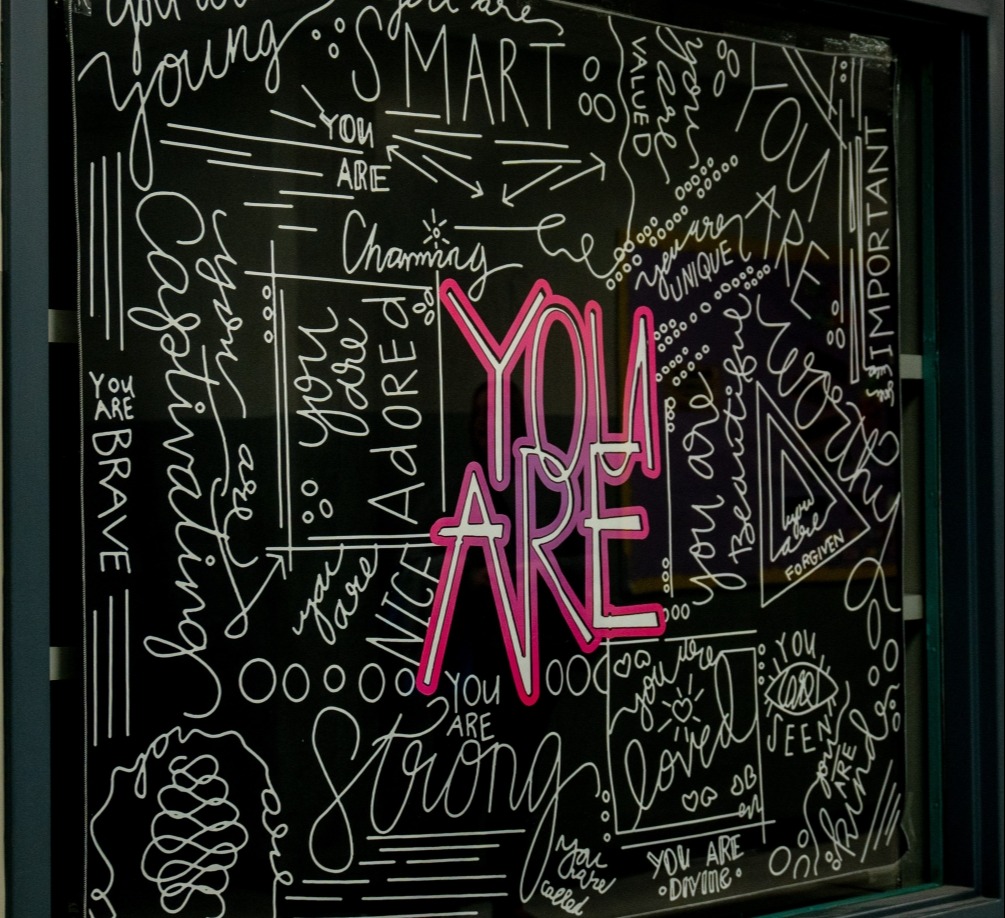 you are
young
you are
SMART
VALUED
you are
YOU
ARE
IMPORTANT
you are
YOU
ARE
Charming
you are
UNIQUE
Captivating
you are
you
are
AdOREd
YOU
ARE
you are
Beautiful
Worthy
YOU
ARE
BRAVE
you
are
FORGIVEN
you
are
NICE
YOU
ARE
Strong
you are
loved
YOU
are
SEEN
you
ARE
kind
you
are
called
YOU ARE
DivINe